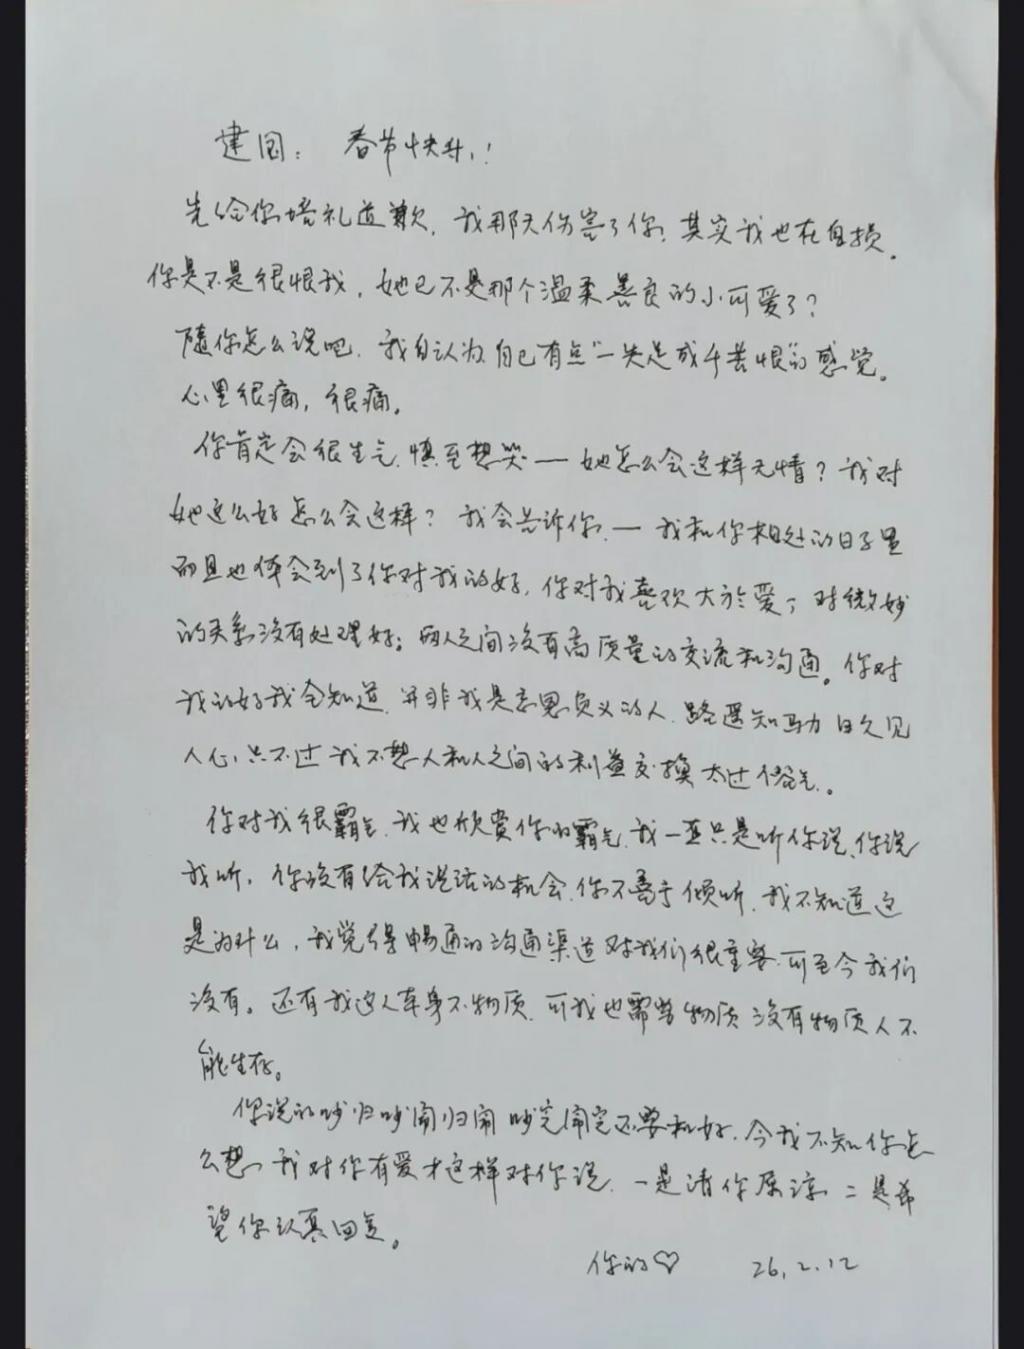 建国：春节快乐！
先给你培礼道歉，我那天伤害了你，其实我也在自损。
你是不是很恨我，她已不是那个温柔善良的小可爱了？
随你怎么说吧，我自认为自己有点“一失足成千苦恨”的感觉。
心里很痛，很痛。
你肯定会很生气，慎至想哭——她怎么会这样无情？我对
她这么好怎么会这样？我会告诉你，——我和你相处的日子里
而且也体会到了你对我的好，你对我喜欢大於爱；对微妙
的关系没有处理好；两人之间没有高质量的交流和沟通。你对
我的好我全知道，并非我是忘恩负义的人，路遥知马力日久见
人心，只不过我不想人和人之间的利益交换太过俗气。
你对我很霸气，我也欣赏你的霸气，我一直只是听你说、你说
我听，你没有给我说话的机会，你不善于倾听，我不知道这
是为什么，我觉得畅通的沟通渠道对我们很重要，可至今我们
没有。还有我这人本身不物质，可我也需要物质没有物质人不
能生存。
你说的吵归吵闹归闹吵完闹完还要和好，今我不知你怎
么想，我对你有爱才这样对你说，一是请你原谅，二是希
望你认真回复。
你的♡ 26.2.12